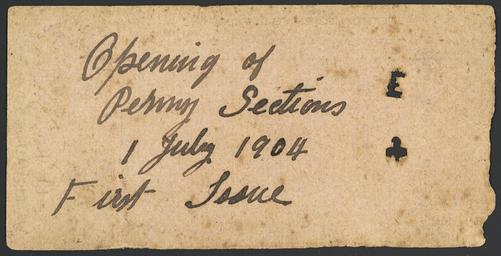 Opening of
Penny Sections
1 July 1904
First Issue
E